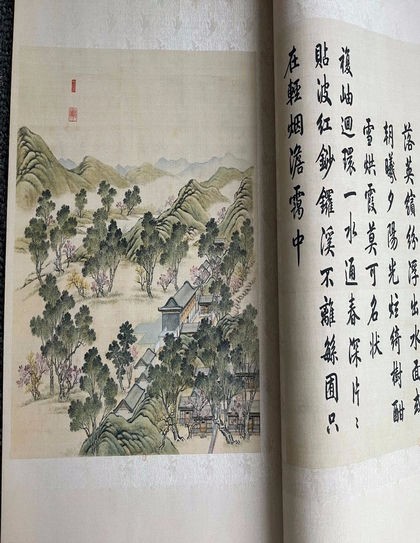 落英繽紛浮出水面或
朝曦夕陽光炫綺樹酣
雪烘霞莫可名狀
複岫迴環一水通春深片〻
貼波紅鈔鑼溪不離繇圃只
在輕烟澹靄中